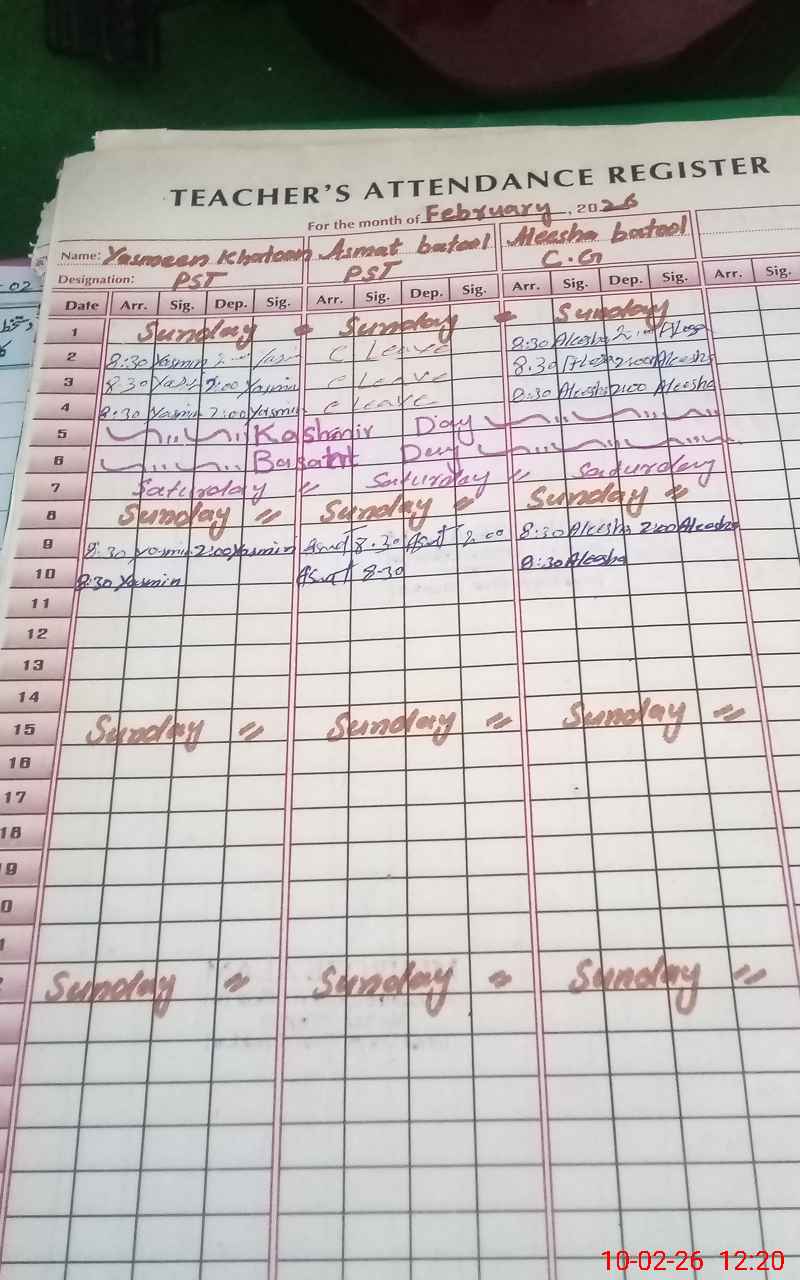 TEACHER'S ATTENDANCE REGISTER
For the month of February, 2026
Name: Yasmeen Khatoon Asmat batool Aleesha batool
Designation: PST PST C.G
Date Arr. Sig. Dep. Sig. Arr. Sig. Dep. Sig. Arr. Sig. Dep. Sig. Arr. Sig.
1 Sunday = Sunday = Sunday
2 8:30 Yasmin 2 C Leave 8:30 Aleesha 2
3 8:30 2:00 Yasmin C Leave 8:30 2:00 Aleesha
4 8:30 Yasmin 2:00 Yasmin C Leave 8:30 Aleesha 2:00 Aleesha
5 Kashmir Day
6 Basaht Day
7 Saturday = Saturday = Saturday
8 Sunday = Sunday = Sunday =
9 8:30 Yasmin 2:00 Yasmin Asmat 8:30 Asmat 2:00 8:30 Aleesha 2:00 Aleesha
10 8:30 Yasmin Asmat 8-30 8:30 Aleesha
11
12
13
14
15 Sunday = Sunday = Sunday =
16
17
18
9
0
1
Sunday = Sunday = Sunday =
02
10-02-26 12:20